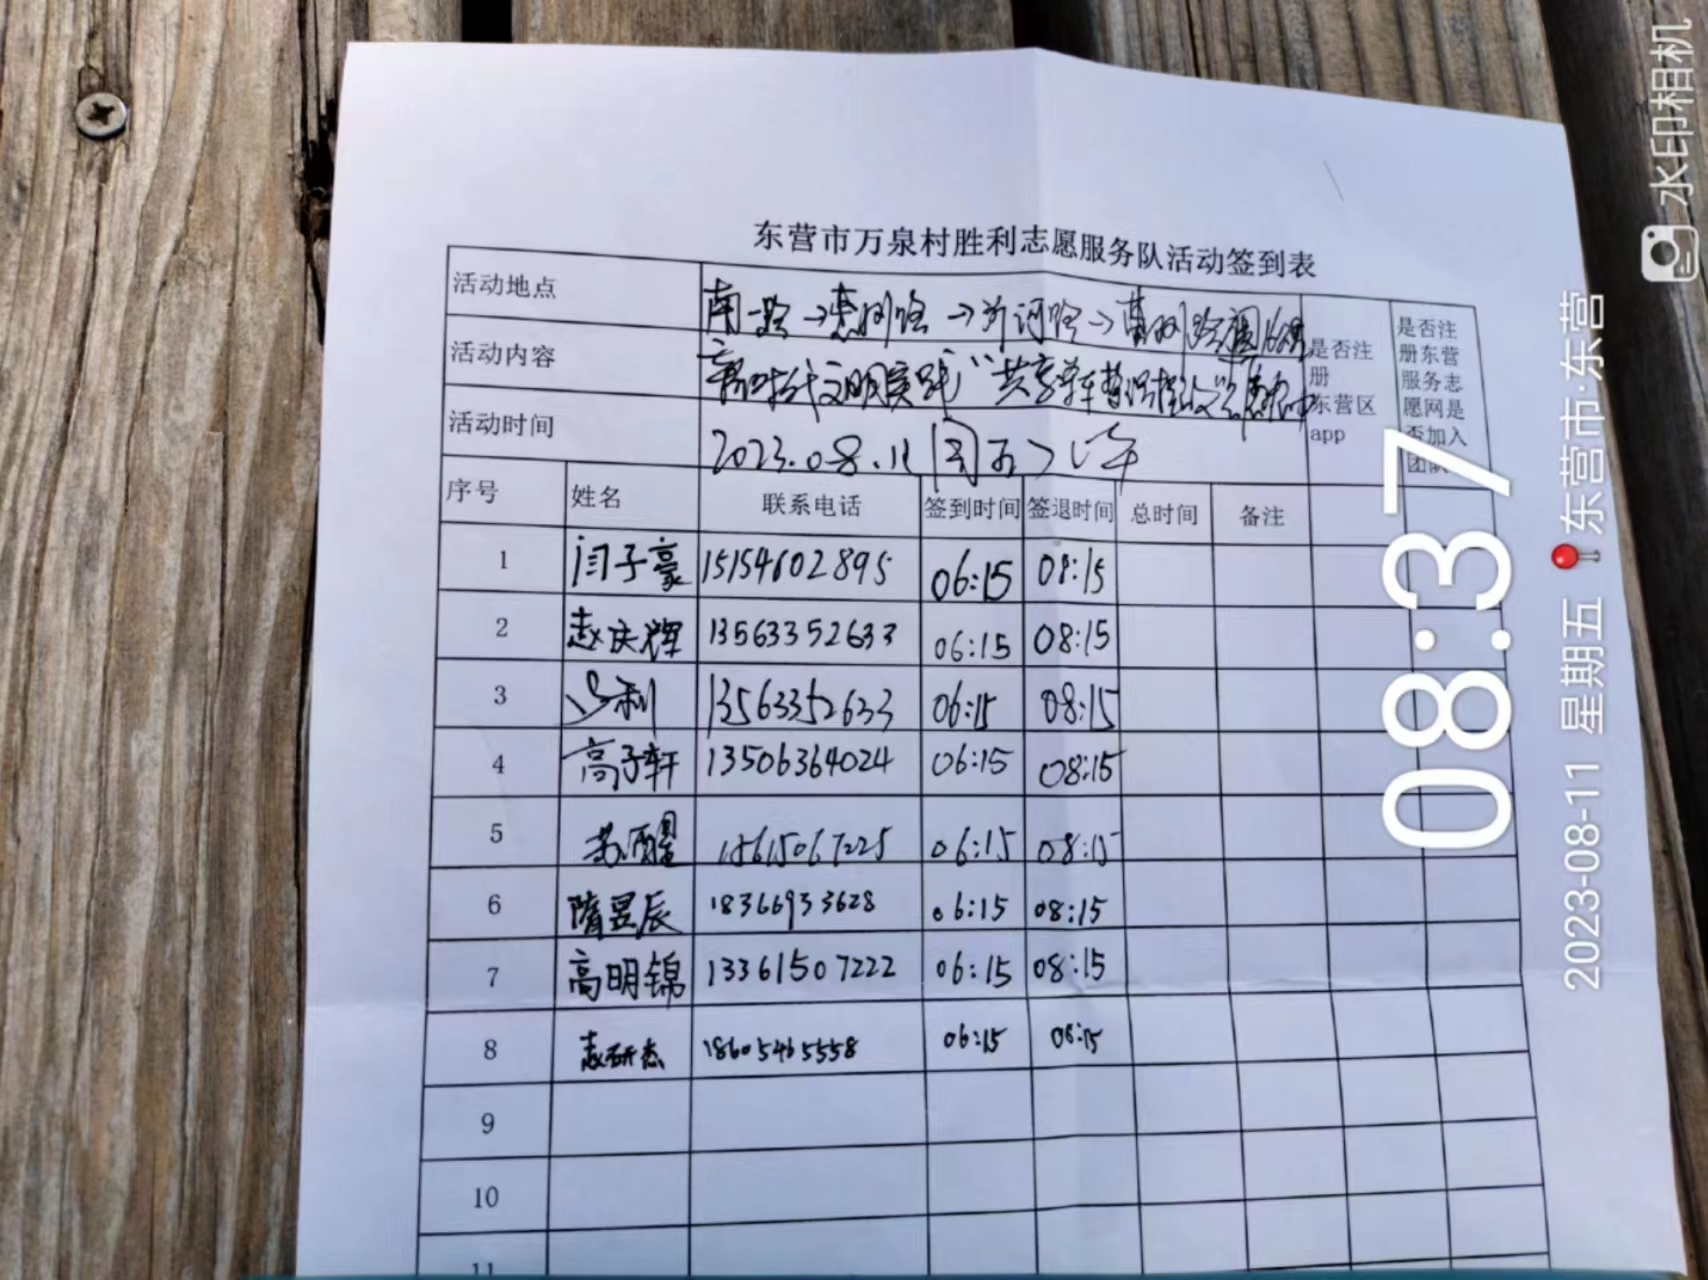 东营市万泉村胜利志愿服务队活动签到表
活动地点 南一路→
活动内容 新时代文明实践"共享单车整
活动时间 2023.08.11 周五 上午
是否注册东营区app
是否注册东营服务志愿网是否加入团队
序号 姓名 联系电话 签到时间 签退时间 总时间 备注
1 闫子豪 15154602895 06:15 08:15
2 赵庆辉 13563352633 06:15 08:15
3 利 13563352633 06:15 08:15
4 高子轩 13506364024 06:15 08:15
5 15615067225 06:15 08:15
6 隋昱辰 18366933628 06:15 08:15
7 高明锦 13361507222 06:15 08:15
8 赵研 18605465558 06:15 08:15
9
10
11
08:37
2023-08-11 星期五 东营市·东营
水印相机